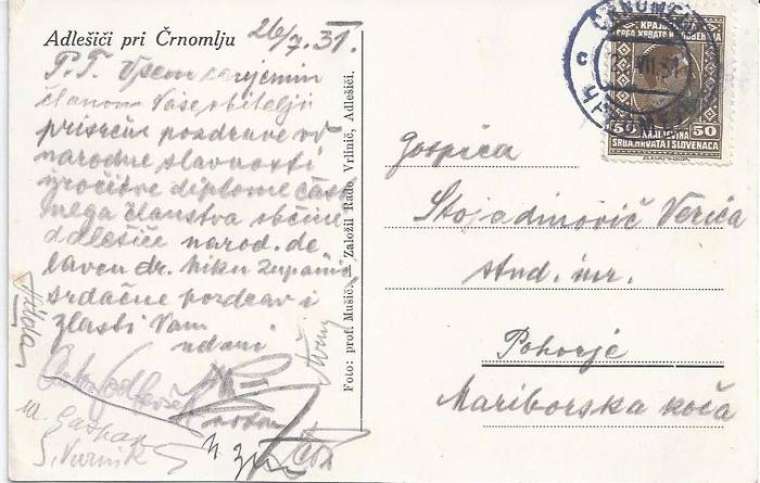 Adlešiči pri Črnomlju 26/7.31.
P.T. Vsem
članom Vaše obitelji
prisrčne pozdrave od
narodne slavnosti
izročitve diplome čast
nega članstva občine
Adlešiče narod. de
lavcu dr. Niku Županič
srdačne pozdrav i
zlasti Vam
udani
Foto: prof. Musič. – Založil Rado Vrlinič, Adlešiči.
KRALJEVINA
SRBA, HRVATA I SLOVENACA
50 50
Gospica
Stojadinović Verica
stud. iur.
Pohorje
Mariborska koča